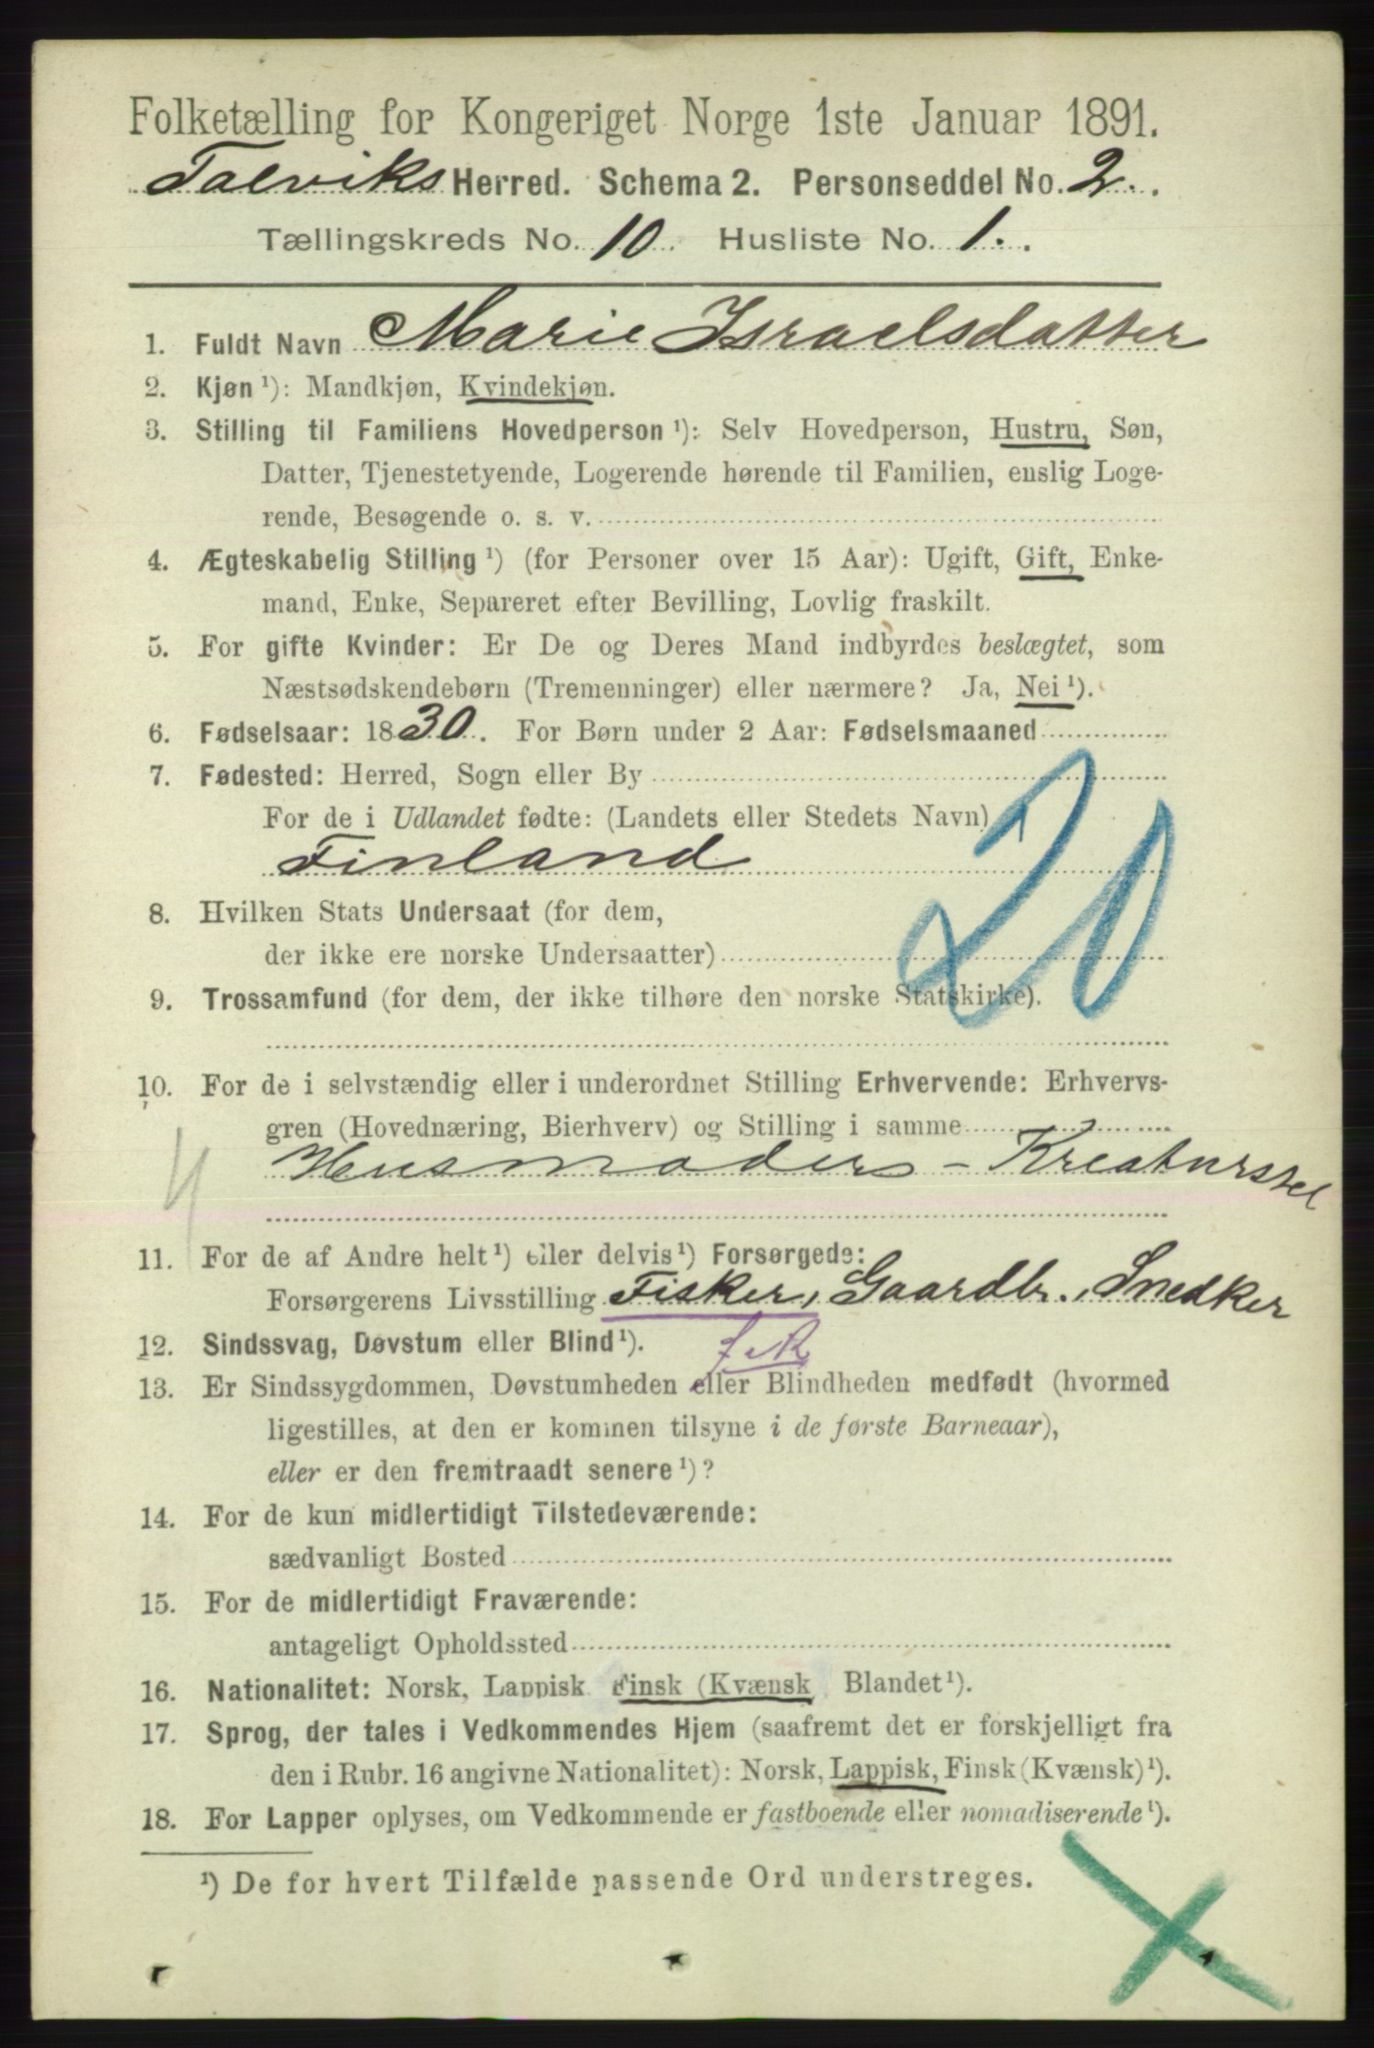 Folketælling for Kongeriget Norge 1ste Januar 1891.
Talviks Herred. Schema 2. Personseddel No. 2.
Tællingskreds No. 10 Husliste No. 1.
1. Fuldt Navn Marie Israelsdatter
2. Kjøn ¹): Mandkjøn, Kvindekjøn.
3. Stilling til Familiens Hovedperson ¹): Selv Hovedperson, Hustru, Søn,
Datter, Tjenestetyende, Logerende hørende til Familien, enslig Loge-
rende, Besøgende o. s. v.
4. Ægteskabelig Stilling ¹) (for Personer over 15 Aar): Ugift, Gift, Enke-
mand, Enke, Separeret efter Bevilling, Lovlig fraskilt.
5. For gifte Kvinder: Er De og Deres Mand indbyrdes beslægtet, som
Næstsødskendebørn (Tremenninger) eller nærmere? Ja, Nei ¹).
6. Fødselsaar: 1830. For Børn under 2 Aar: Fødselsmaaned
7. Fødested: Herred, Sogn eller By
For de i Udlandet fødte: (Landets eller Stedets Navn)
Finland
20
8. Hvilken Stats Undersaat (for dem,
der ikke ere norske Undersaatter)
9. Trossamfund (for dem, der ikke tilhøre den norske Statskirke).
10. For de i selvstændig eller i underordnet Stilling Erhvervende: Erhvervs-
gren (Hovednæring, Bierhverv) og Stilling i samme
Husmoder - Kreaturstel
11. For de af Andre helt ¹) eller delvis ¹) Forsørgede:
Forsørgerens Livsstilling Fisker, Gaardbr., Snedker
12. Sindssvag, Døvstum eller Blind ¹).
13. Er Sindssygdommen, Døvstumheden eller Blindheden medfødt (hvormed
ligestilles, at den er kommen tilsyne i de første Barneaar),
eller er den fremtraadt senere ¹)?
14. For de kun midlertidigt Tilstedeværende:
sædvanligt Bosted
15. For de midlertidigt Fraværende:
antageligt Opholdssted
16. Nationalitet: Norsk, Lappisk Finsk (Kvænsk Blandet ¹).
17. Sprog, der tales i Vedkommendes Hjem (saafremt det er forskjelligt fra
den i Rubr. 16 angivne Nationalitet): Norsk, Lappisk, Finsk (Kvænsk) ¹).
18. For Lapper oplyses, om Vedkommende er fastboende eller nomadiserende ¹).
¹) De for hvert Tilfælde passende Ord understreges.